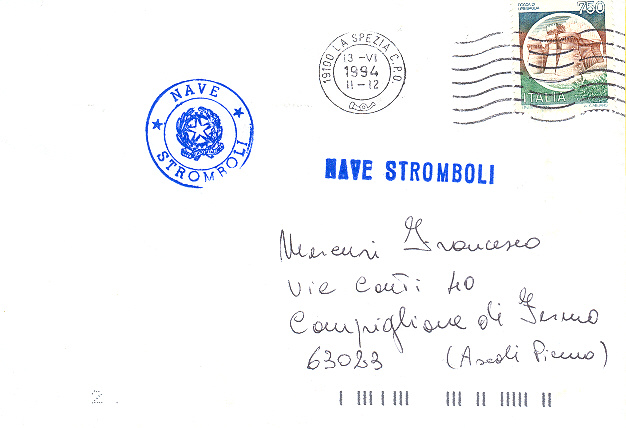 750
ITALIA
19100 LA SPEZIA C.P.O.
13 -VI
1994
11-12
NAVE
STROMBOLI
NAVE STROMBOLI
Mercuri Francesco
Vie Conti 40
Campiglione di Fermo
63023 (Ascoli Piceno)
2